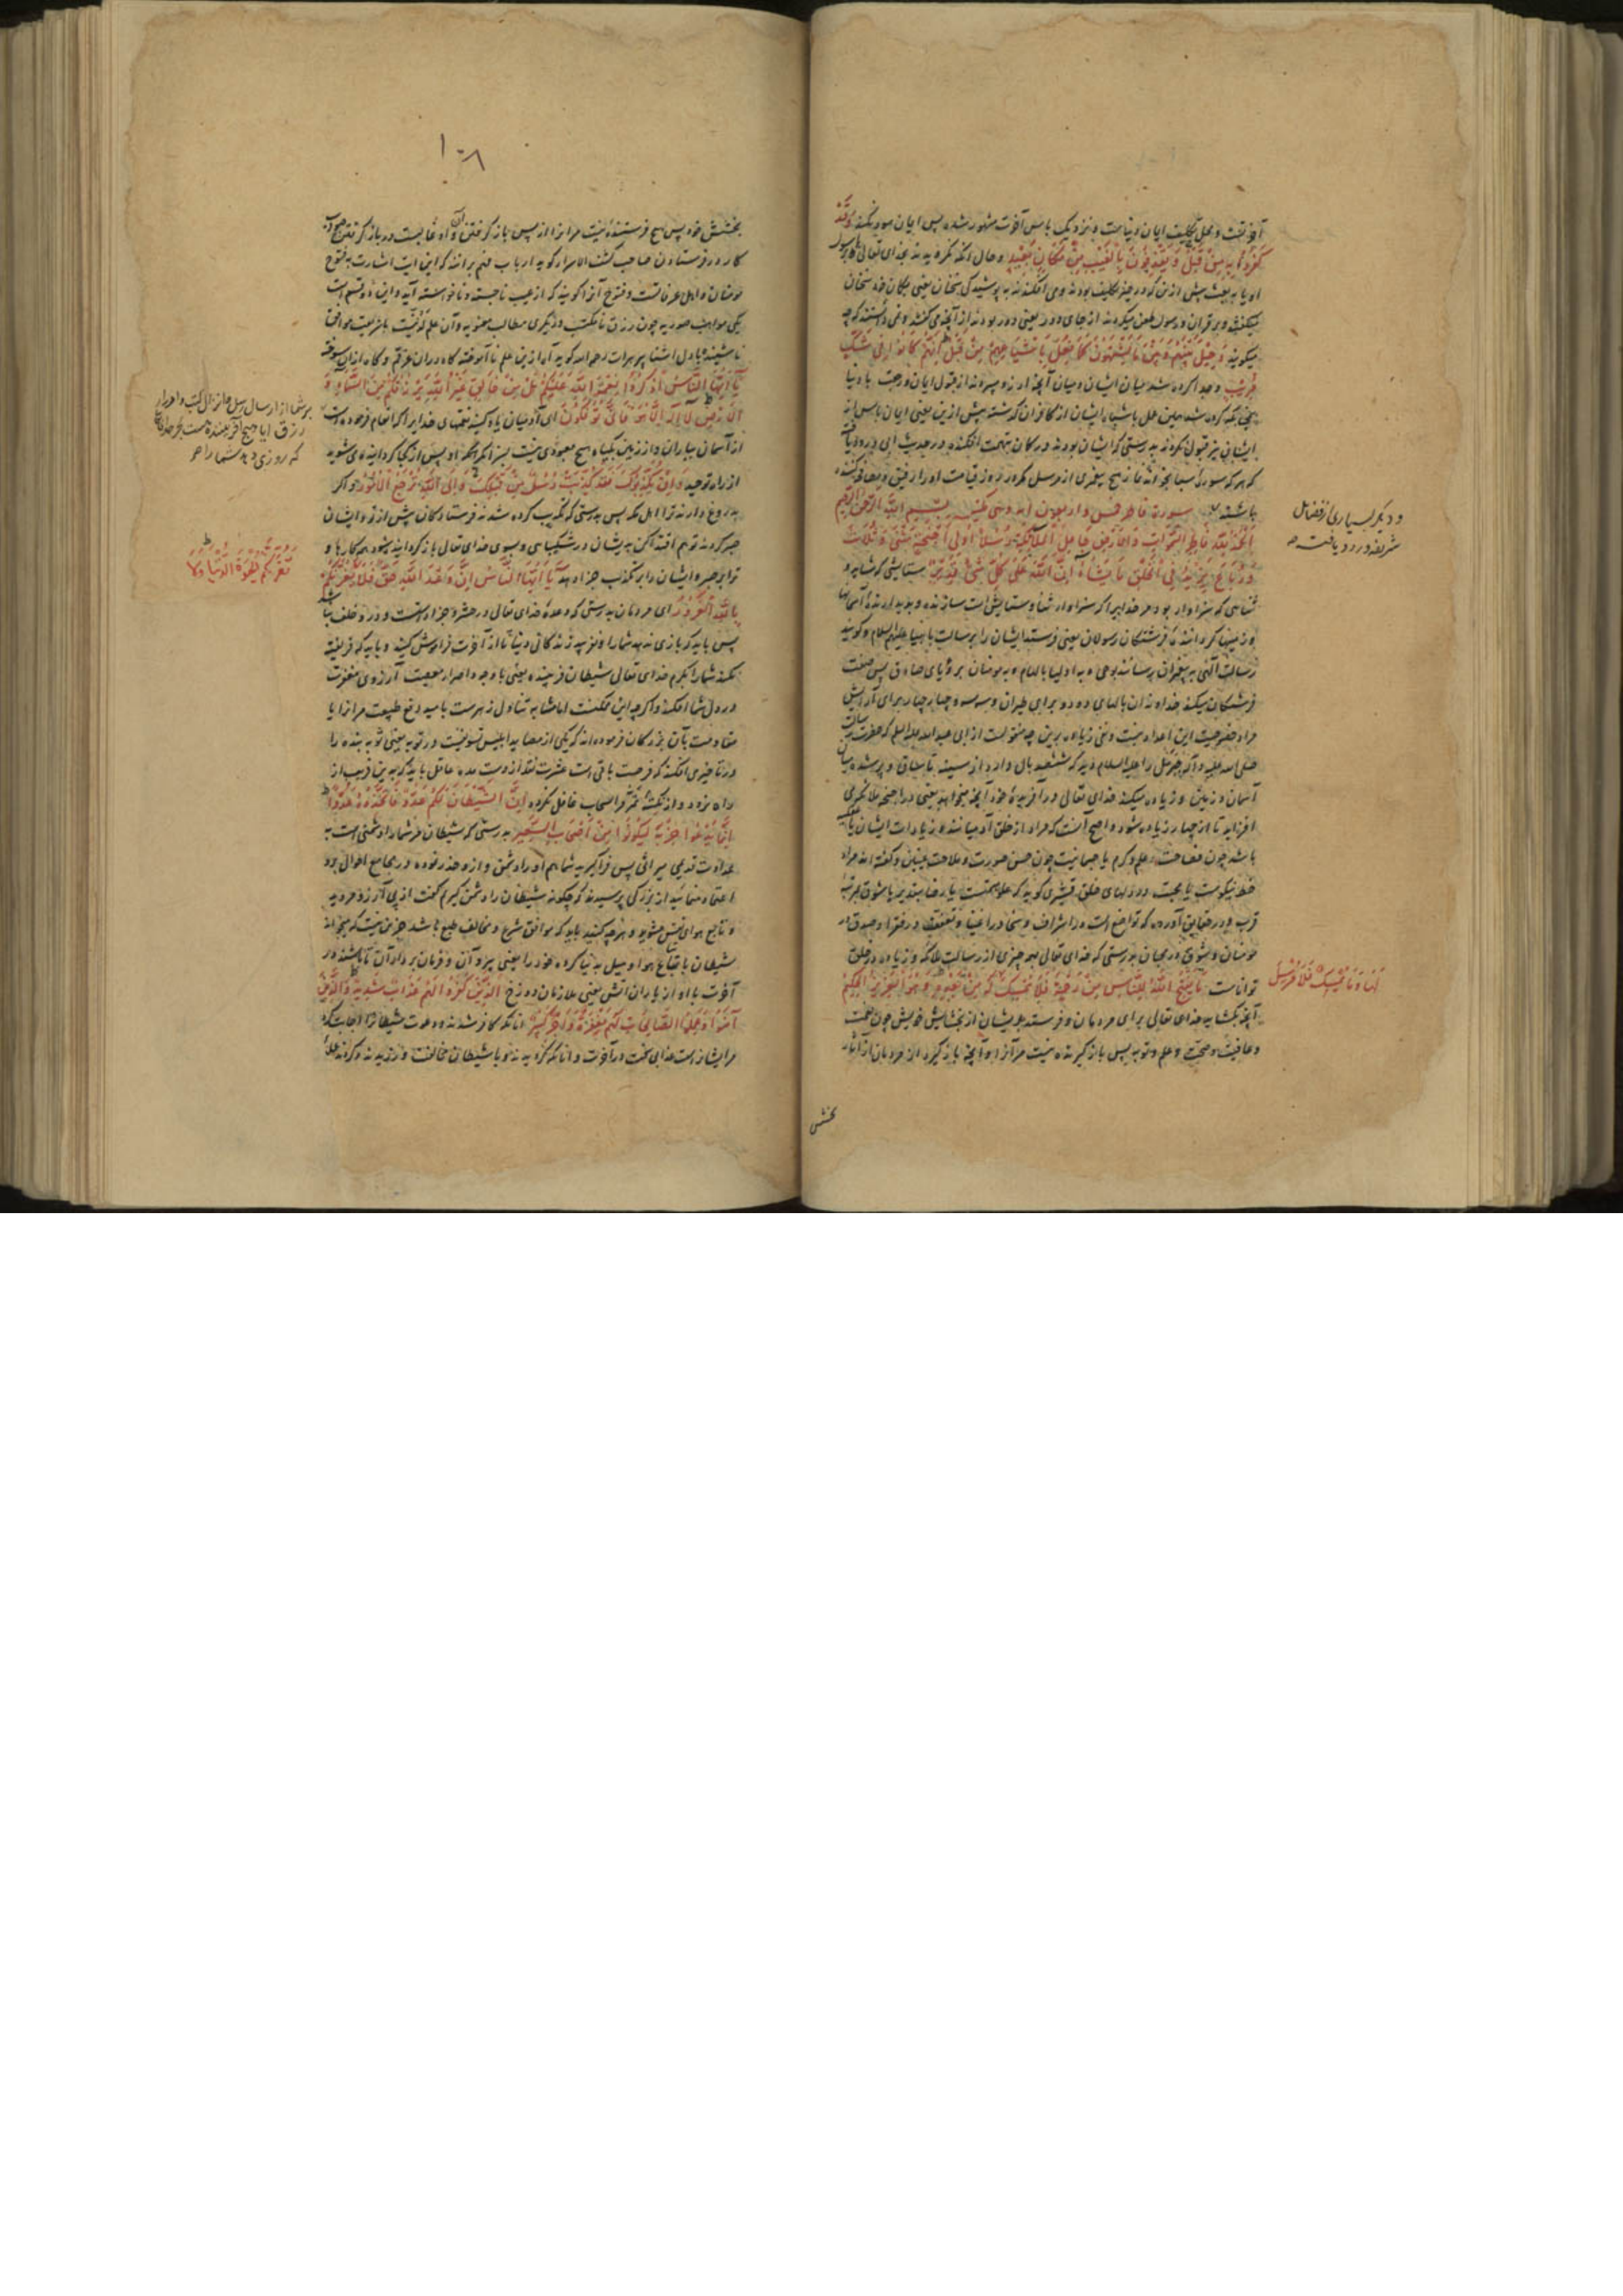 آخرتست و محل تکلیف ایمان دنیاست و نزدیک باس آخرت مشهور شده پس ایمان سود نکند وَقَدْ
كَفَرُوا بِهِ مِنْ قَبْلُ وَيَقْذِفُونَ بِالْغَيْبِ مِنْ مَكَانٍ بَعِيدٍ و حال آنکه نگرویدند بخدای تعالی یا برسول
او یا به بعث پیش ازین که در حیز تکلیف بودند و می افکندند به پوشیدگی سخنان یعنی بگمان خود سخنان
میگفتند و بر قرآن و رسول طعن میکردند از جای دور یعنی دور بودند از آنچه میگفتند و نمی دانستند که چه
میگویند وَحِيلَ بَيْنَهُمْ وَبَيْنَ مَا يَشْتَهُونَ كَمَا فُعِلَ بِأَشْيَاعِهِمْ مِنْ قَبْلُ إِنَّهُمْ كَانُوا فِي شَكٍّ
مُرِيبٍ و جدا کرده شد میان ایشان و میان آنچه آرزو میبردند از قبول ایمان و رجعت با دنیا
همچنانکه کرده شد همین عمل باشباه ایشان از کافران گذشته پیش ازین یعنی ایمان باس از
ایشان نیز قبول نکردند بدرستی که ایشان بودند در گمان تهمت افکنده و در حدیث ابی
که هر که سوره سبا بخواند نماند هیچ پیغمبری از مرسل مگر در روز قیامت او را رفیق و مصافحه کننده
باشند سورة فاطر خمس و اربعون آیه و هی مکیه بِسْمِ اللَّهِ الرَّحْمَنِ الرَّحِيمِ
و دیگر بسیاری از فضایل
شریفه ورود یافته
الْحَمْدُ لِلَّهِ فَاطِرِ السَّمَوَاتِ وَالْأَرْضِ جَاعِلِ الْمَلَائِكَةِ رُسُلًا أُولِي أَجْنِحَةٍ مَثْنَى وَثُلَاثَ
وَرُبَاعَ يَزِيدُ فِي الْخَلْقِ مَا يَشَاءُ إِنَّ اللَّهَ عَلَى كُلِّ شَيْءٍ قَدِيرٌ ستایشی که شاید و
ثنائی که سزاوار بود مر خدایرا که سزاوار ثنا و ستایش است سازنده و پدیدآرنده آسمانها
و زمینها گرداننده فرشتگان رسولان یعنی فرستد ایشان را برسالت بانبیا علیهم السلام و گویند
رسالت الهی به پیغمبران رسانند بوحی و به اولیا بالهام و به مومنان برؤیای صادق پس صفت
فرشتگان میکند خداوندان بالهای دو دو برای طیران و سه سه و چهار چهار برای آرایش
مراد خصوصیت این اعداد نیست و نفی زیاده برین چه منقولست از ابی عبدالله علیه السلام که حضرت رسالت
صلی الله علیه و آله جبرئیل را علیه السلام دید که ششصد بال دارد
آسمان و زمین و زیاده میکند خدای تعالی در آفریده خود آنچه میخواهد یعنی در اجنحه ملائکه می
افزاید تا از چهار زیاده شود و اصح آنست که مراد از خلق آدمیانند و زیادات ایشان یا
باشد چون فصاحت و علم و کرم یا جسمانیت چون حسن صورت و ملاحت عینین و گفته اند مراد
خط نیکوست یا محبت در دلهای خلق قشیری گوید که علو همتست یا رضا بتقدیر یا شوق بمرتبه
قرب و در حقایق آورده که تواضع است در اشراف و سخا در اغنیا و تعفف در فقرا و صدق در
مومنان و شوق در محبان بدرستی که خدای تعالی بر همه چیزی از رسالت ملائکه و زیاده در خلق
تواناست مَا يَفْتَحِ اللَّهُ لِلنَّاسِ مِنْ رَحْمَةٍ فَلَا مُمْسِكَ لَهَا وَمَا يُمْسِكْ فَلَا مُرْسِلَ لَهُ مِنْ بَعْدِهِ وَهُوَ الْعَزِيزُ الْحَكِيمُ
آنچه بگشاید خدای تعالی برای مردمان و فرستد بدیشان از بخشایش خویش چون نعمت
و عافیت و صحت و علم و توبه پس باز گیرنده نیست مر آنرا و آنچه باز گیرد از مردمان از آثار
بخشش
۱۰۸
بخشش خود پس هیچ فرستنده نیست مر آنرا از پس باز گرفتن آن و او غالبست در باز گرفتن
کار در فرستادن صاحب کشف الاسرار گوید ارباب فهم برانند که این آیت اشارت به فتوح
مومنان و اهل عرفانست و فتوح آنرا گویند که از غیب ناجسته و ناخواسته آید و این دو قسم است
یکی مواهب صوریه چون رزق نامکتسب و دیگری مطالب معنویه و آن علم لدنیست با شریعت موافق
يَا أَيُّهَا النَّاسُ اذْكُرُوا نِعْمَةَ اللَّهِ عَلَيْكُمْ هَلْ مِنْ خَالِقٍ غَيْرُ اللَّهِ يَرْزُقُكُمْ مِنَ السَّمَاءِ وَ
الْأَرْضِ لَا إِلَهَ إِلَّا هُوَ فَأَنَّى تُؤْفَكُونَ ای آدمیان یاد کنید نعمتهای خدایرا که انعام فرموده است
بر شما از ارسال رسل و انزال کتب و ادرار
رزق آیا هیچ آفریننده هست غیر خدای تعالی
که روزی دهد شما را
از آسمان بباران و از زمین بگیاه هیچ معبودی نیست بسزا مگر او پس از کجا گردانیده می شوید
از راه توحید وَإِنْ يُكَذِّبُوكَ فَقَدْ كُذِّبَتْ رُسُلٌ مِنْ قَبْلِكَ وَإِلَى اللَّهِ تُرْجَعُ الْأُمُورُ و اگر
بدروغ دارند ترا اهل مکه پس بدرستی که تکذیب کرده شدند فرستادگان پیش از تو و ایشان
صبر کردند تو هم اقتدا کن بدیشان در شکیبایی و بسوی خدای تعالی باز گردانیده شود همه کارها و
ترا بر صبر و ایشان را بر تکذیب جزا دهد يَا أَيُّهَا النَّاسُ إِنَّ وَعْدَ اللَّهِ حَقٌّ فَلَا تَغُرَّنَّكُمُ
تَغُرَّنَّكُمُ الْحَيَوةُ الدُّنْيَا وَلَا
بِاللَّهِ الْغَرُورُ ای مردمان بدرستی که وعده خدای تعالی در حشر و جزا راست و در او خلف نباشد
پس باید که بازی ندهد شما را و نفریبد زندگانی دنیا تا از آخرت فراموش کنید و باید که فریفته
نکند شما را بکرم خدای تعالی شیطان فریبنده یعنی با وجود اصرار معصیت آرزوی مغفرت
در دل شما افکند و اگر چه این ممکنست اما مشابه تناول زهرست بامید دفع طبیعت مر آنرا یا
مقاومت بآن بزرگان فرموده اند که یکی از مصاید ابلیس تسویفست در توبه یعنی توبه بنده را
در تاخیر می افکند که فرصت باقی است عشرت نقد از دست مده عاقل باید که بدین فریب از
راه نرود إِنَّ الشَّيْطَانَ لَكُمْ عَدُوٌّ فَاتَّخِذُوهُ عَدُوًّا
إِنَّمَا يَدْعُو حِزْبَهُ لِيَكُونُوا مِنْ أَصْحَابِ السَّعِيرِ بدرستی که شیطان مر شما را دشمنی است به
عداوت قدیمی میراثی پس فرا گیرید شما هم او را دشمن و از و حذر نموده در مجامع احوال برو
اعتماد منمائید از بزرگی پرسیدند که چگونه شیطان را دشمن گیریم گفت از پی آرزو مروید
و تابع هوای نفس مشوید و هر چه کنید باید که موافق شرع و مخالف طبع باشد جزین نیست که میخواند
شیطان باتباع هوا و میل بدنیا گروه خود را یعنی پیروان و فرمان برداران تا باشند در
آخرت با او از یاران آتش یعنی ملازمان دوزخ الَّذِينَ كَفَرُوا لَهُمْ عَذَابٌ شَدِيدٌ وَالَّذِينَ
آمَنُوا وَعَمِلُوا الصَّالِحَاتِ لَهُمْ مَغْفِرَةٌ وَأَجْرٌ كَبِيرٌ آنانکه کافر شدند و دعوت شیطانرا اجابت کردند
مر ایشانراست عذابی سخت در آخرت و آنانکه گرویدند و با شیطان مخالفت ورزیدند و کردند عملها